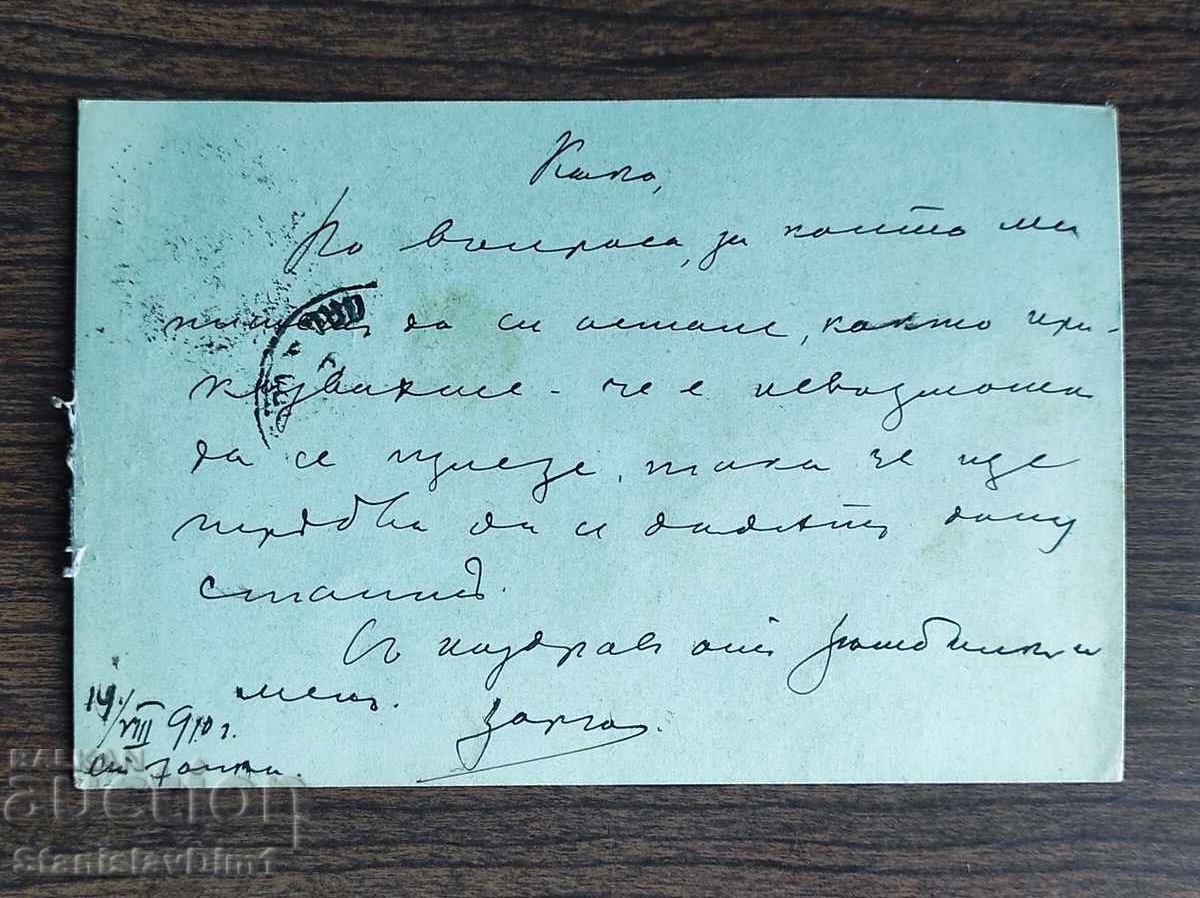 Како,
По въпроса, за който ми
пишешъ да си остане, както при-
казвахме - че е невъзможно
да се излезе, така че ще
трѣбва да се дадатъ
Съ поздравъ отъ
менъ.
14/VIII 910 г.
BALKAN
auction
StanislavDim1